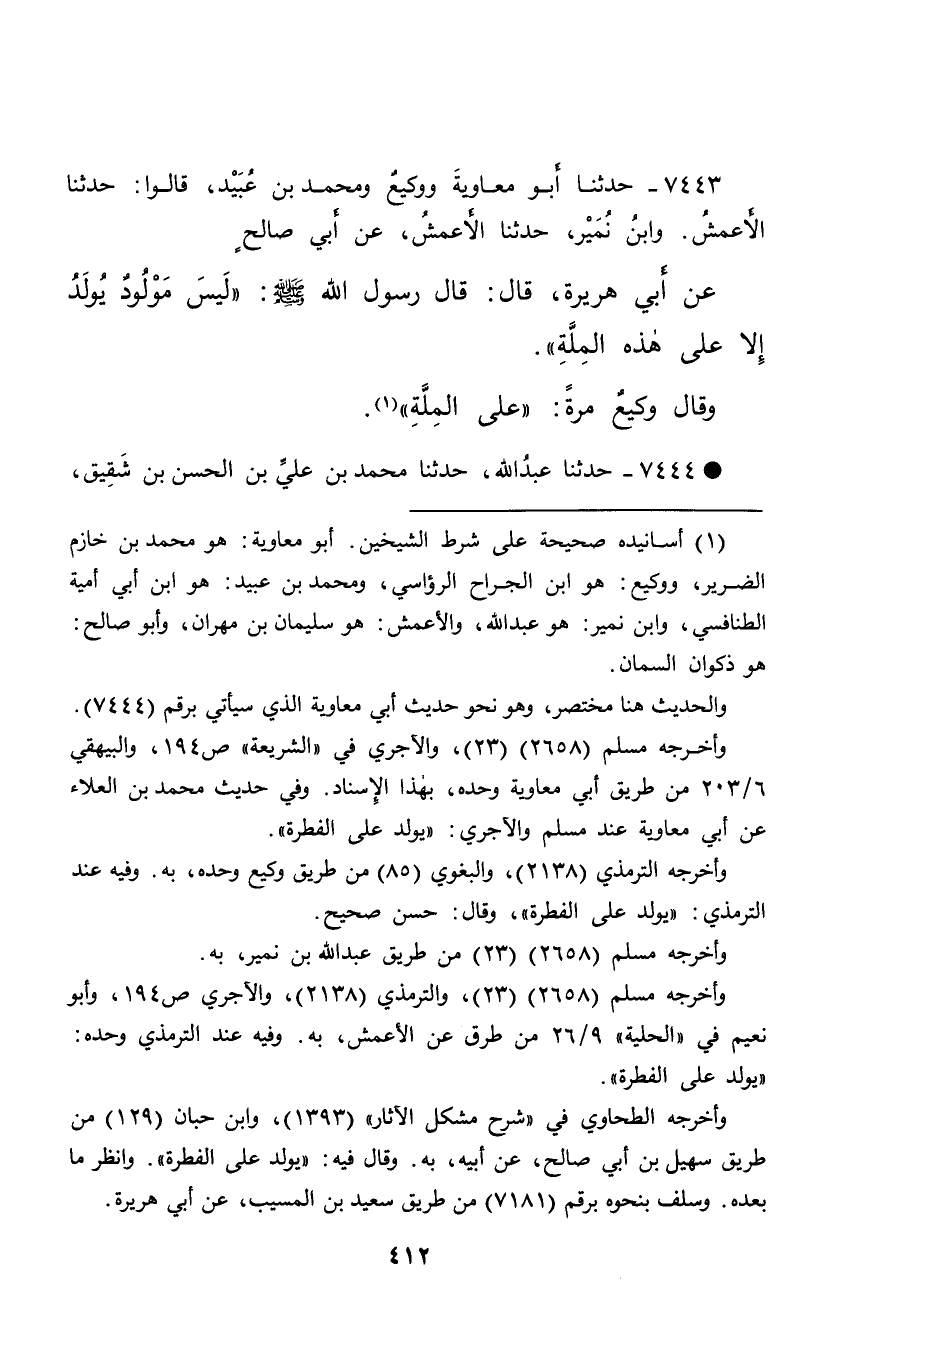 ٧٤٤٣ ـ حدثنا أَبو معاويةَ ووكيعٌ ومحمد بن عُبَيْد، قالوا: حدثنا
الأَعمشُ. وابنُ نُمَيْر، حدثنا الأَعمشُ، عن أَبي صالحٍ
عن أَبي هريرة، قال: قال رسول الله ﷺ: «لَيسَ مَوْلُودٌ يُولَدُ
إِلا على هٰذه المِلَّةِ».
وقال وكيعٌ مرةً: «على المِلَّةِ»(١).
● ٧٤٤٤ ـ حدثنا عبدُالله، حدثنا محمد بن عليِّ بن الحسن بن شَقِيق،
(١) أسانيده صحيحة على شرط الشيخين. أبو معاوية: هو محمد بن خازم
الضرير، ووكيع: هو ابن الجراح الرؤاسي، ومحمد بن عبيد: هو ابن أبي أمية
الطنافسي، وابن نمير: هو عبدالله، والأعمش: هو سليمان بن مهران، وأبو صالح:
هو ذكوان السمان.
والحديث هنا مختصر، وهو نحو حديث أبي معاوية الذي سيأتي برقم (٧٤٤٤).
وأخرجه مسلم (٢٦٥٨) (٢٣)، والآجري في «الشريعة» ص١٩٤، والبيهقي
٢٠٣/٦ من طريق أبي معاوية وحده، بهٰذا الإسناد. وفي حديث محمد بن العلاء
عن أبي معاوية عند مسلم والآجري: «يولد على الفطرة».
وأخرجه الترمذي (٢١٣٨)، والبغوي (٨٥) من طريق وكيع وحده، به. وفيه عند
الترمذي: «يولد على الفطرة»، وقال: حسن صحيح.
وأخرجه مسلم (٢٦٥٨) (٢٣) من طريق عبدالله بن نمير، به.
وأخرجه مسلم (٢٦٥٨) (٢٣)، والترمذي (٢١٣٨)، والآجري ص١٩٤، وأبو
نعيم في «الحلية» ٢٦/٩ من طرق عن الأعمش، به. وفيه عند الترمذي وحده:
«يولد على الفطرة».
وأخرجه الطحاوي في «شرح مشكل الآثار» (١٣٩٣)، وابن حبان (١٢٩) من
طريق سهيل بن أبي صالح، عن أبيه، به. وقال فيه: «يولد على الفطرة». وانظر ما
بعده. وسلف بنحوه برقم (٧١٨١) من طريق سعيد بن المسيب، عن أبي هريرة.
٤١٢